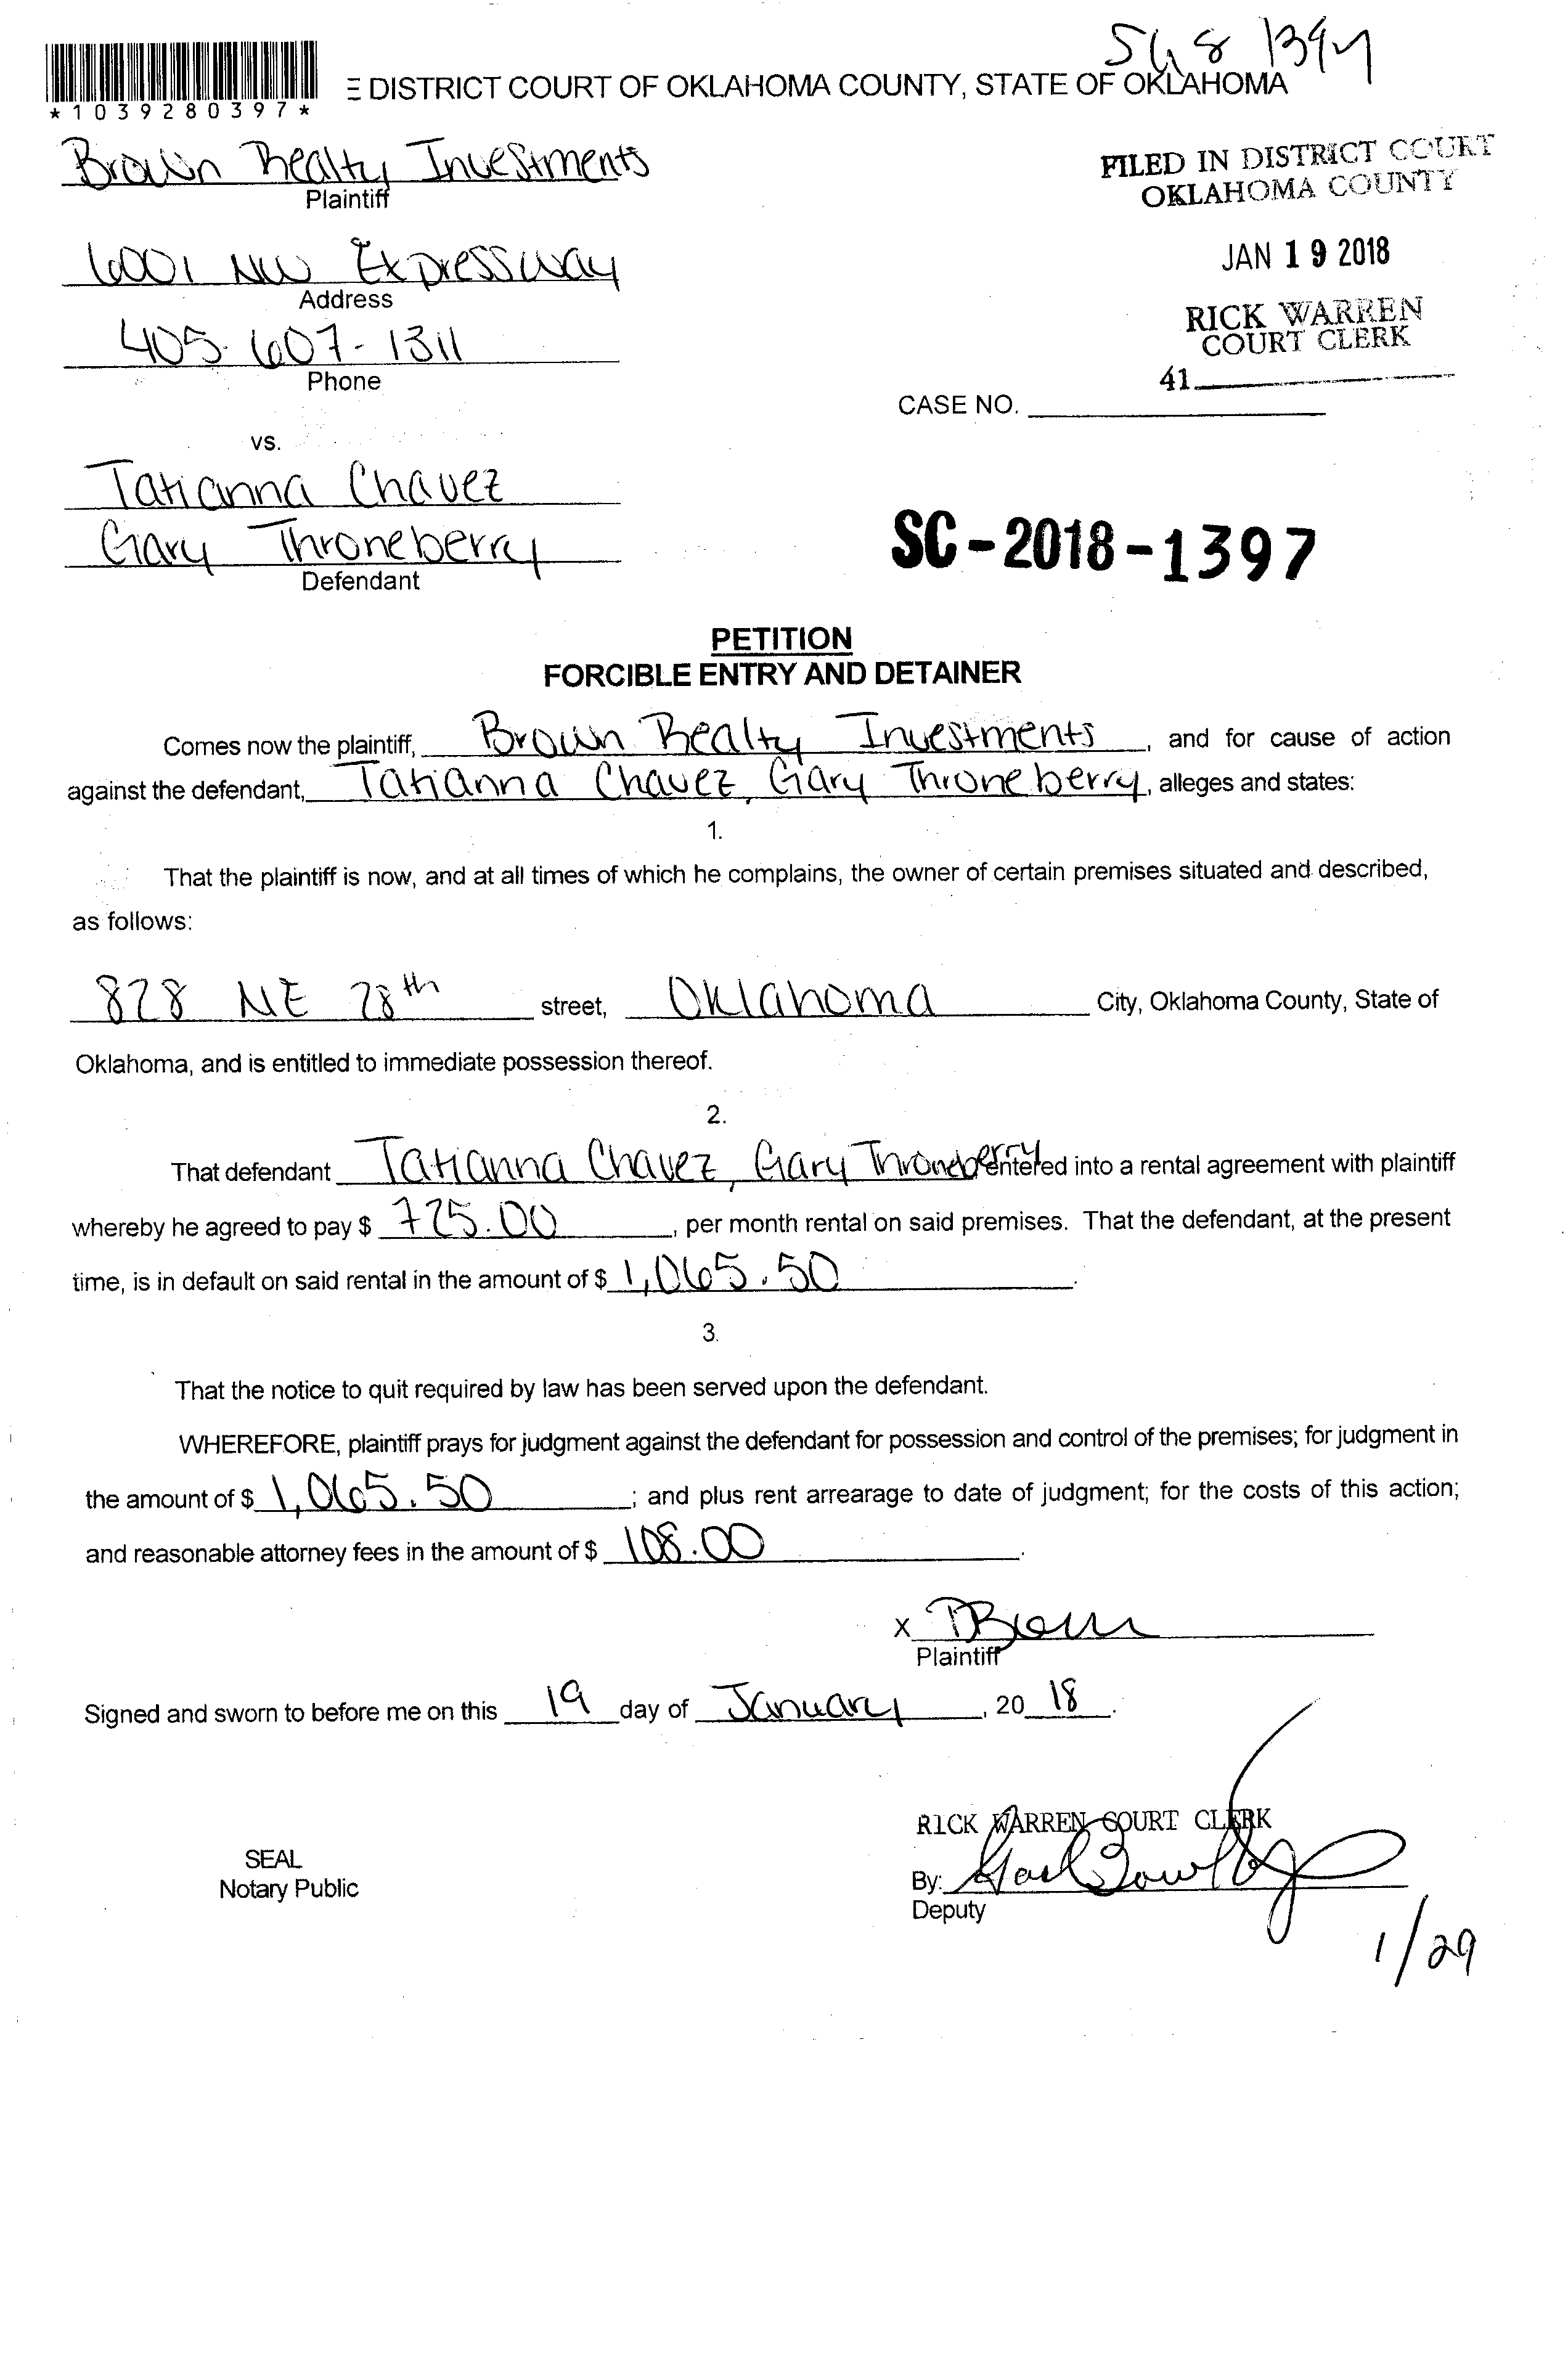 Sc18 1397
*1039280397*
E DISTRICT COURT OF OKLAHOMA COUNTY, STATE OF OKLAHOMA
Brown Realty Investments
Plaintiff
FILED IN DISTRICT COURT
OKLAHOMA COUNTY
6001 NW Expressway
Address
JAN 19 2018
405-607-1311
Phone
RICK WARREN
COURT CLERK
41
CASE NO.
vs.
Tatianna Chavez
Gary Throneberry
Defendant
SC-2018-1397
PETITION
FORCIBLE ENTRY AND DETAINER
Comes now the plaintiff, Brown Realty Investments, and for cause of action
against the defendant, Tatianna Chavez, Gary Throneberry, alleges and states:
1.
That the plaintiff is now, and at all times of which he complains, the owner of certain premises situated and described,
as follows:
828 NE 28th street, Oklahoma City, Oklahoma County, State of
Oklahoma, and is entitled to immediate possession thereof.
2.
That defendant Tatianna Chavez, Gary Throneberry entered into a rental agreement with plaintiff
whereby he agreed to pay $ 725.00, per month rental on said premises. That the defendant, at the present
time, is in default on said rental in the amount of $ 1,065.50.
3.
That the notice to quit required by law has been served upon the defendant.
WHEREFORE, plaintiff prays for judgment against the defendant for possession and control of the premises; for judgment in
the amount of $ 1,065.50; and plus rent arrearage to date of judgment; for the costs of this action;
and reasonable attorney fees in the amount of $ 108.00.
X DBrown
Plaintiff
Signed and sworn to before me on this 19 day of January, 20 18.
RICK WARREN COURT CLERK
SEAL
Notary Public
By:
Deputy
1/29